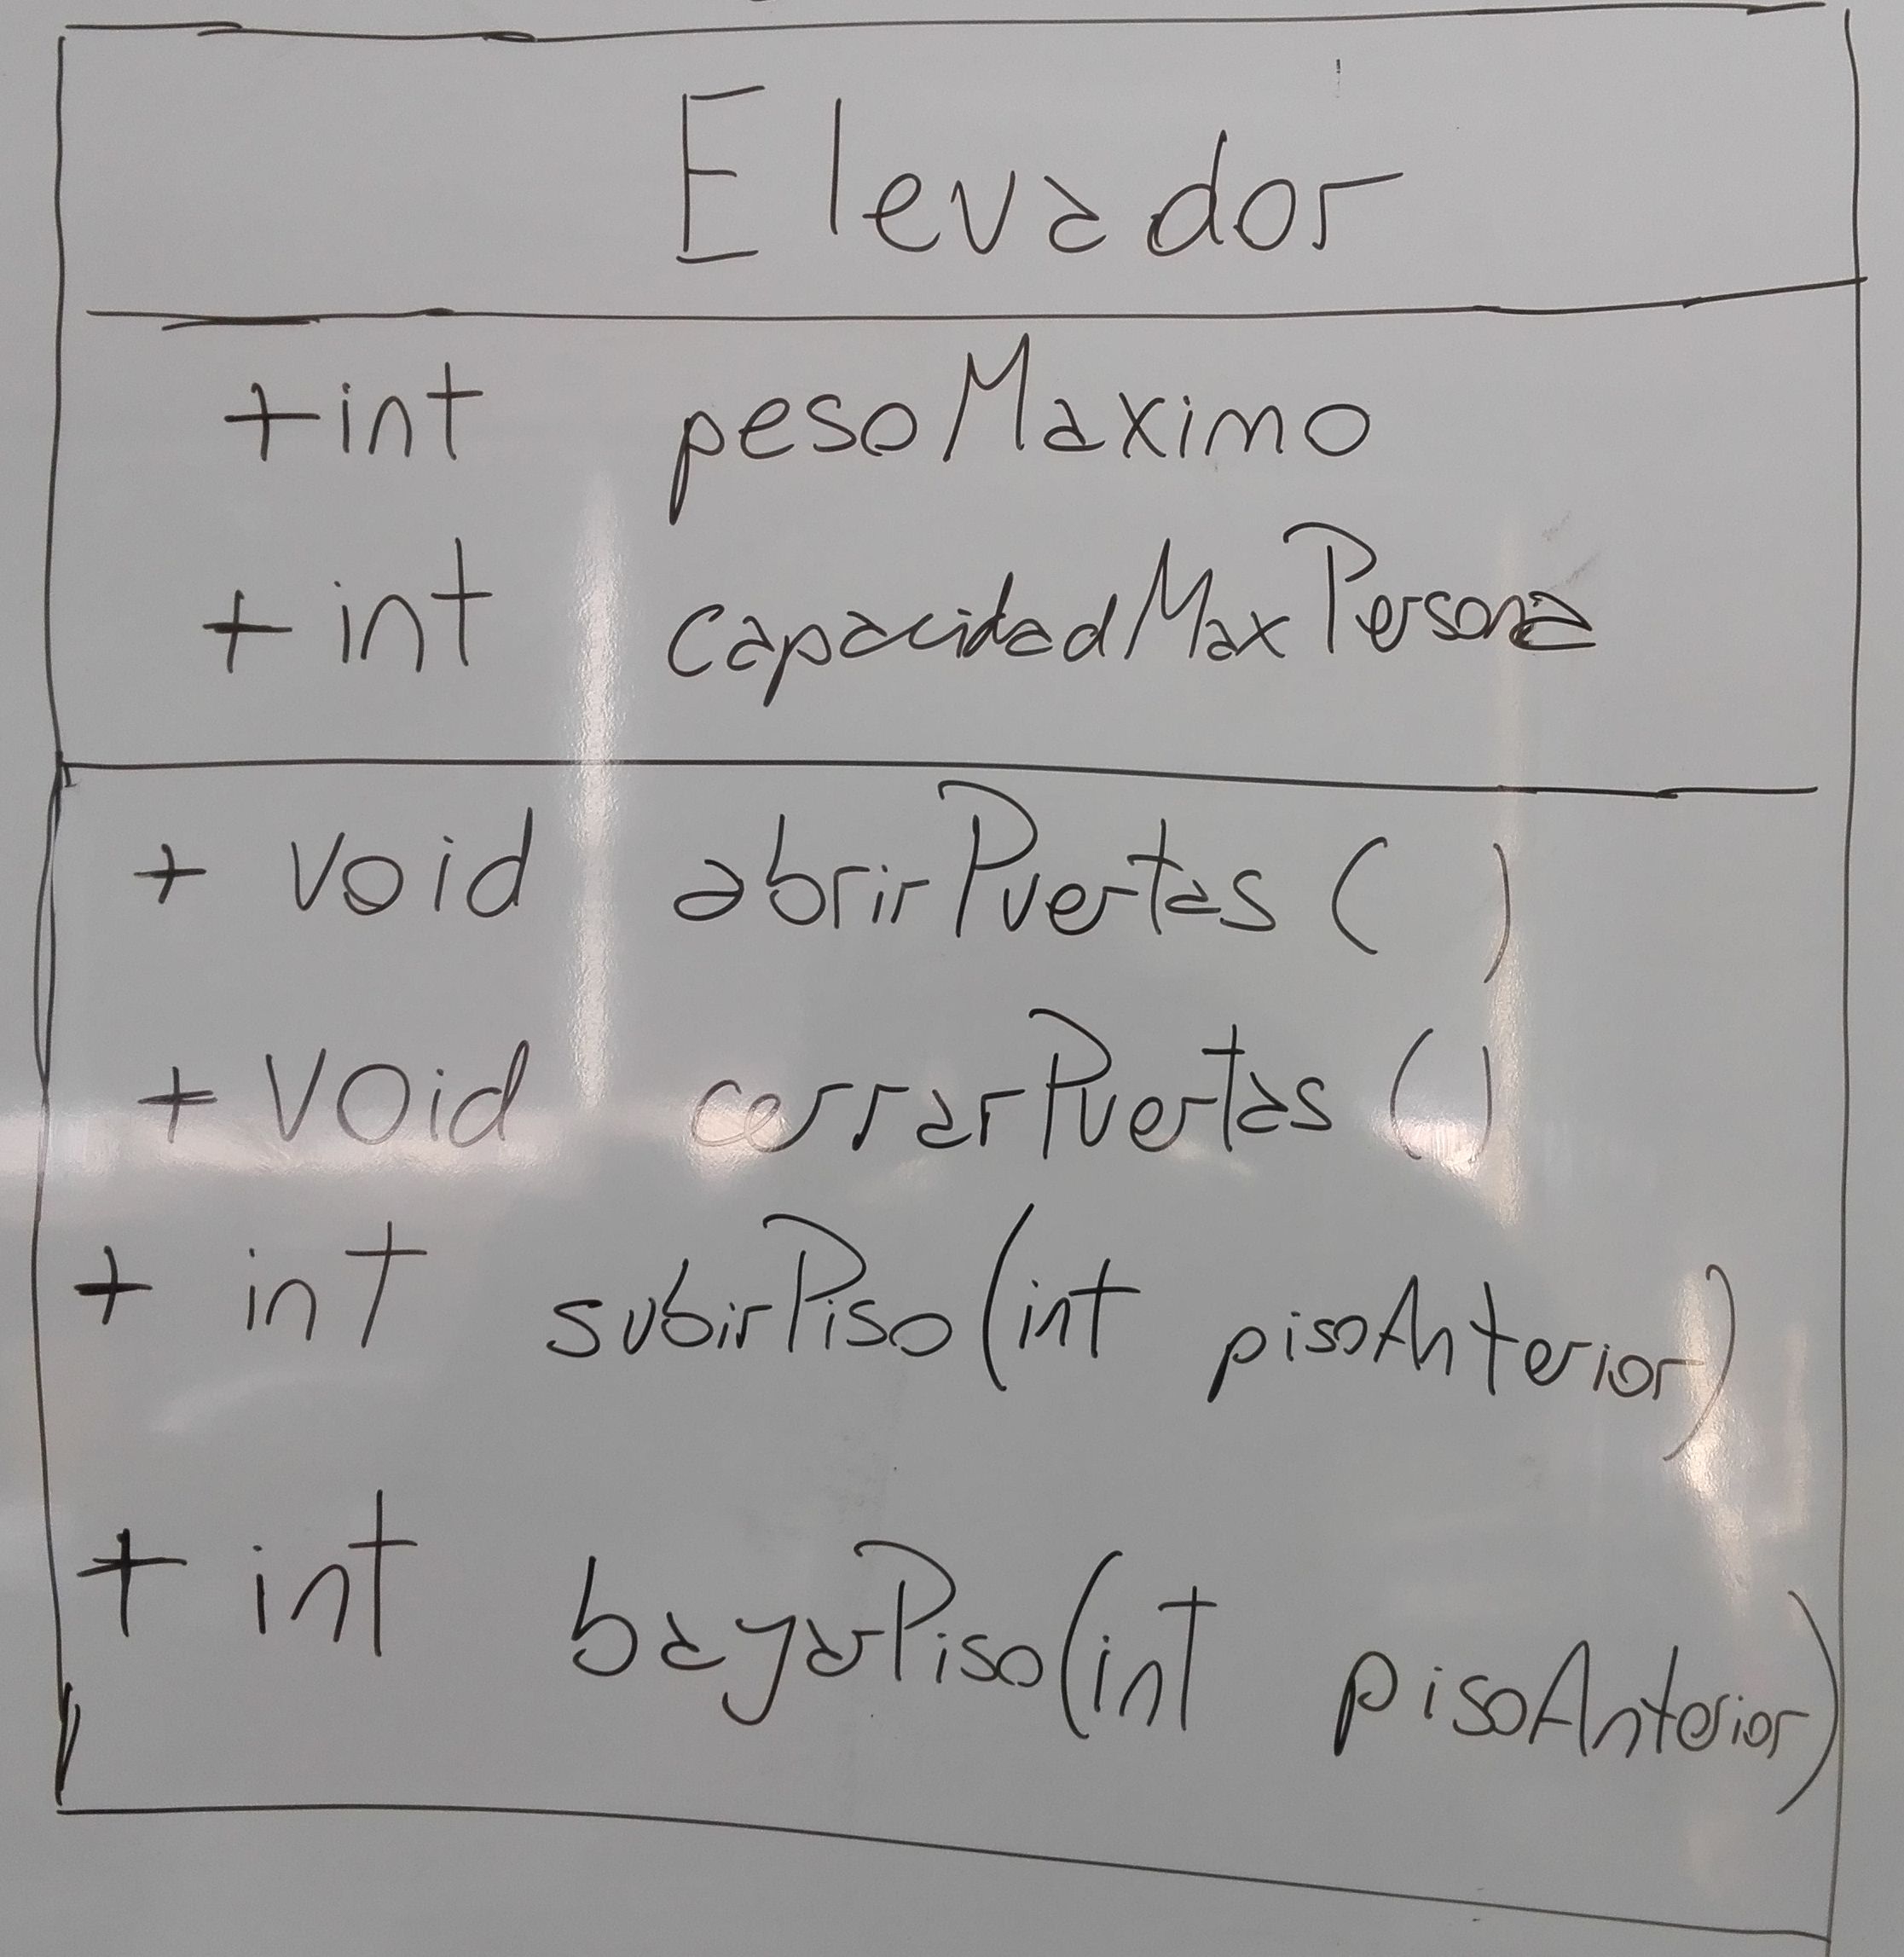 Elevador
+ int pesoMaximo
+ int capacidadMaxPersona
+ void abrirPuertas ( )
+ void cerrarPuertas ( )
+ int subirPiso (int pisoAnterior)
+ int bayarPiso (int pisoAnterior)